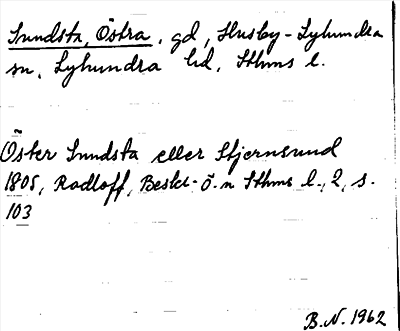 Sundsta, Östra, gd, Husby-Lyhundra
sn, Lyhundra hd, Sthms l.
Öster Sundsta eller Stjernsund
1805, Radloff, Beskr. ö. n Sthms l., 2, s.
103
B.N. 1962